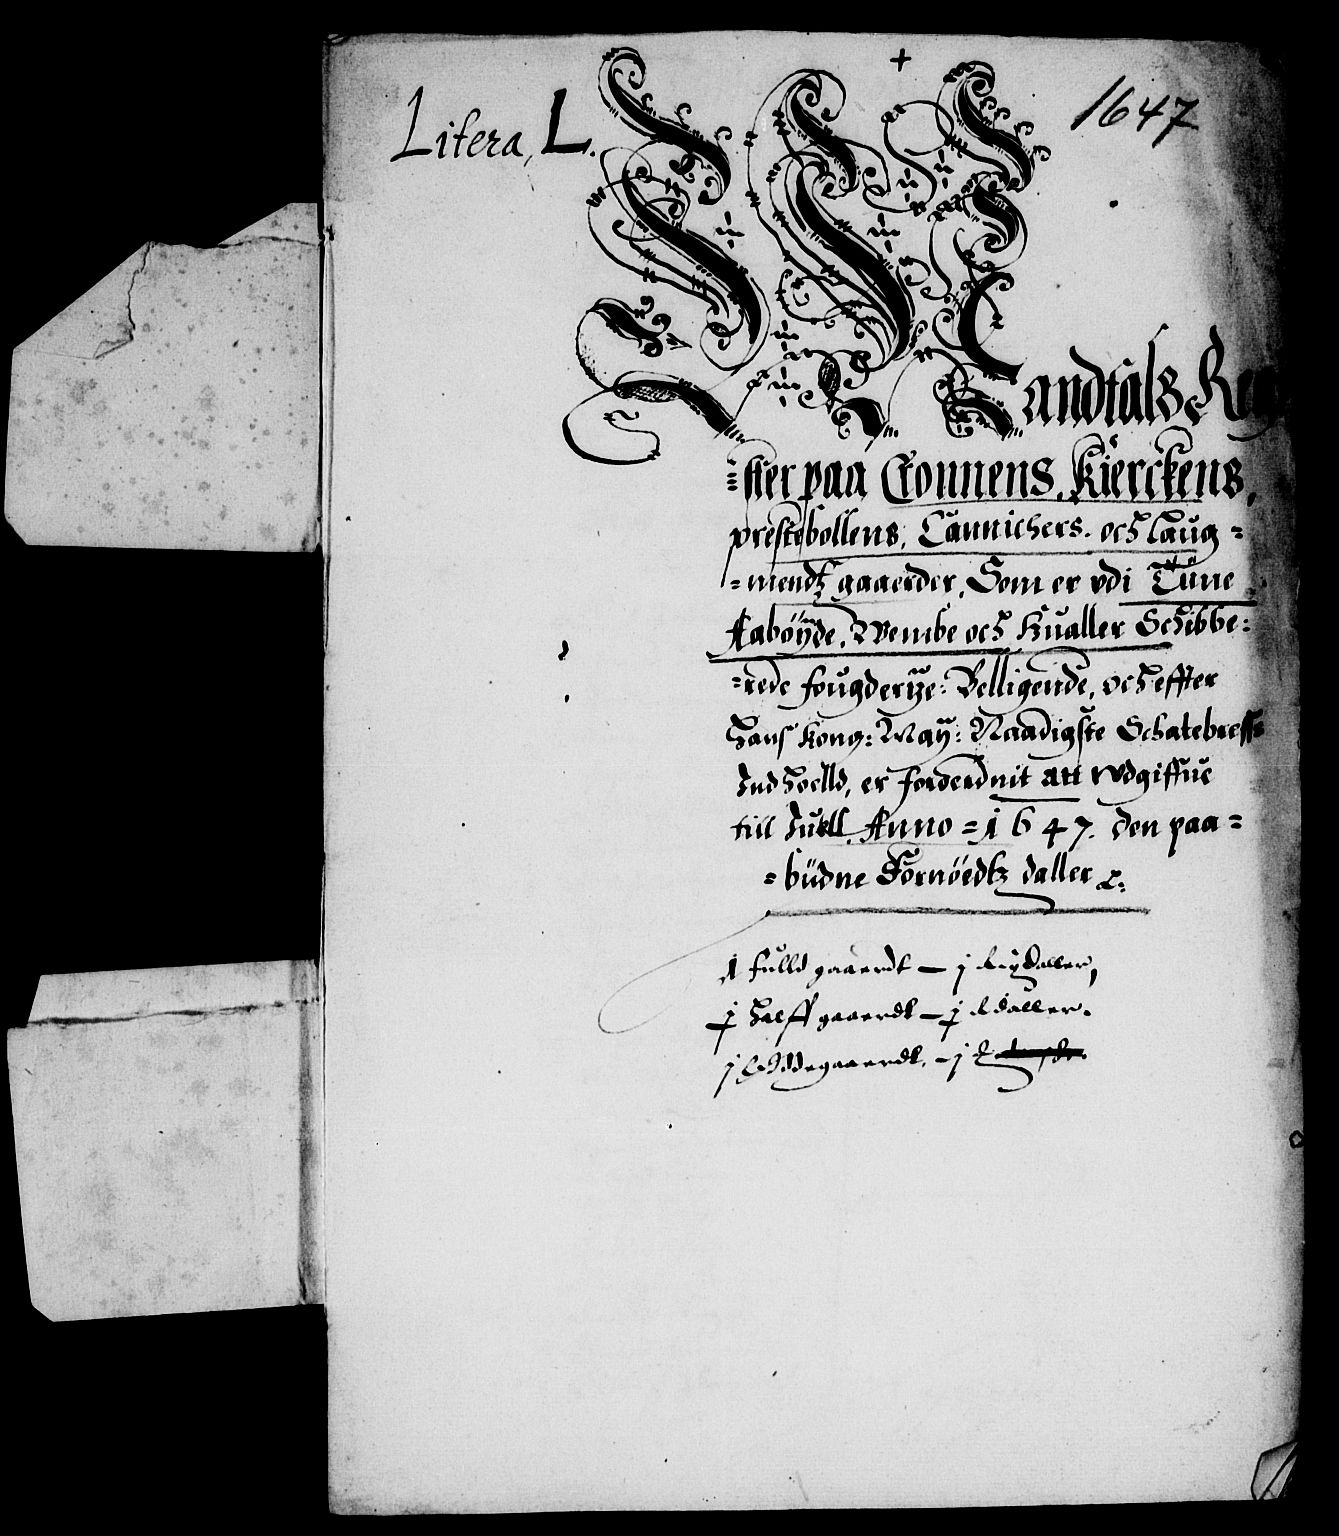 Litera, L.
1647
Mandtals Reg
=ster paa Cronnens, Kierckens,
prestebollens, Cannichers. och Laug=
=mendtz gaarder, Som er vdi Tune
Aabøÿde, Wembe och Hualler Schibbe:
=rede fougderÿe: Belligende, och effter
Hans Kong: Maÿ: Naadigste Schatebreffs
Indhoelld, er forordnit att vdgiffue
till Juell Anno = 1647. den paa=
=büdne Cornøedtz daller
1 fulld gaardt — j
j halff gaaerdt — daller.
j Øddegaaerdt. — j